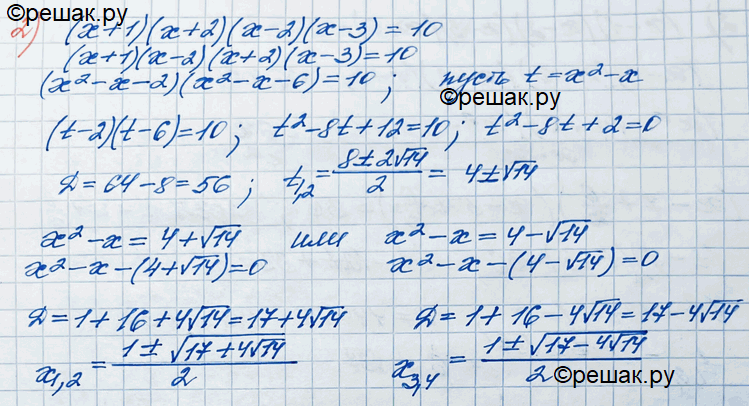 ©решак.ру
2) (x+1)(x+2)(x-2)(x-3)=10
(x+1)(x-2)(x+2)(x-3)=10
(x²-x-2)(x²-x-6)=10; пусть t=x²-x
©решак.ру
(t-2)(t-6)=10; t²-8t+12=10; t²-8t+2=0
Д=64-8=56; t₁,₂=(8±2√14)/2=4±√14
x²-x=4+√14 или x²-x=4-√14
x²-x-(4+√14)=0 x²-x-(4-√14)=0
Д=1+16+4√14=17+4√14 Д=1+16-4√14=17-4√14
x₁,₂=(1±√(17+4√14))/2 x₃,₄=(1±√(17-4√14))/2
©решак.ру ©решак.ру